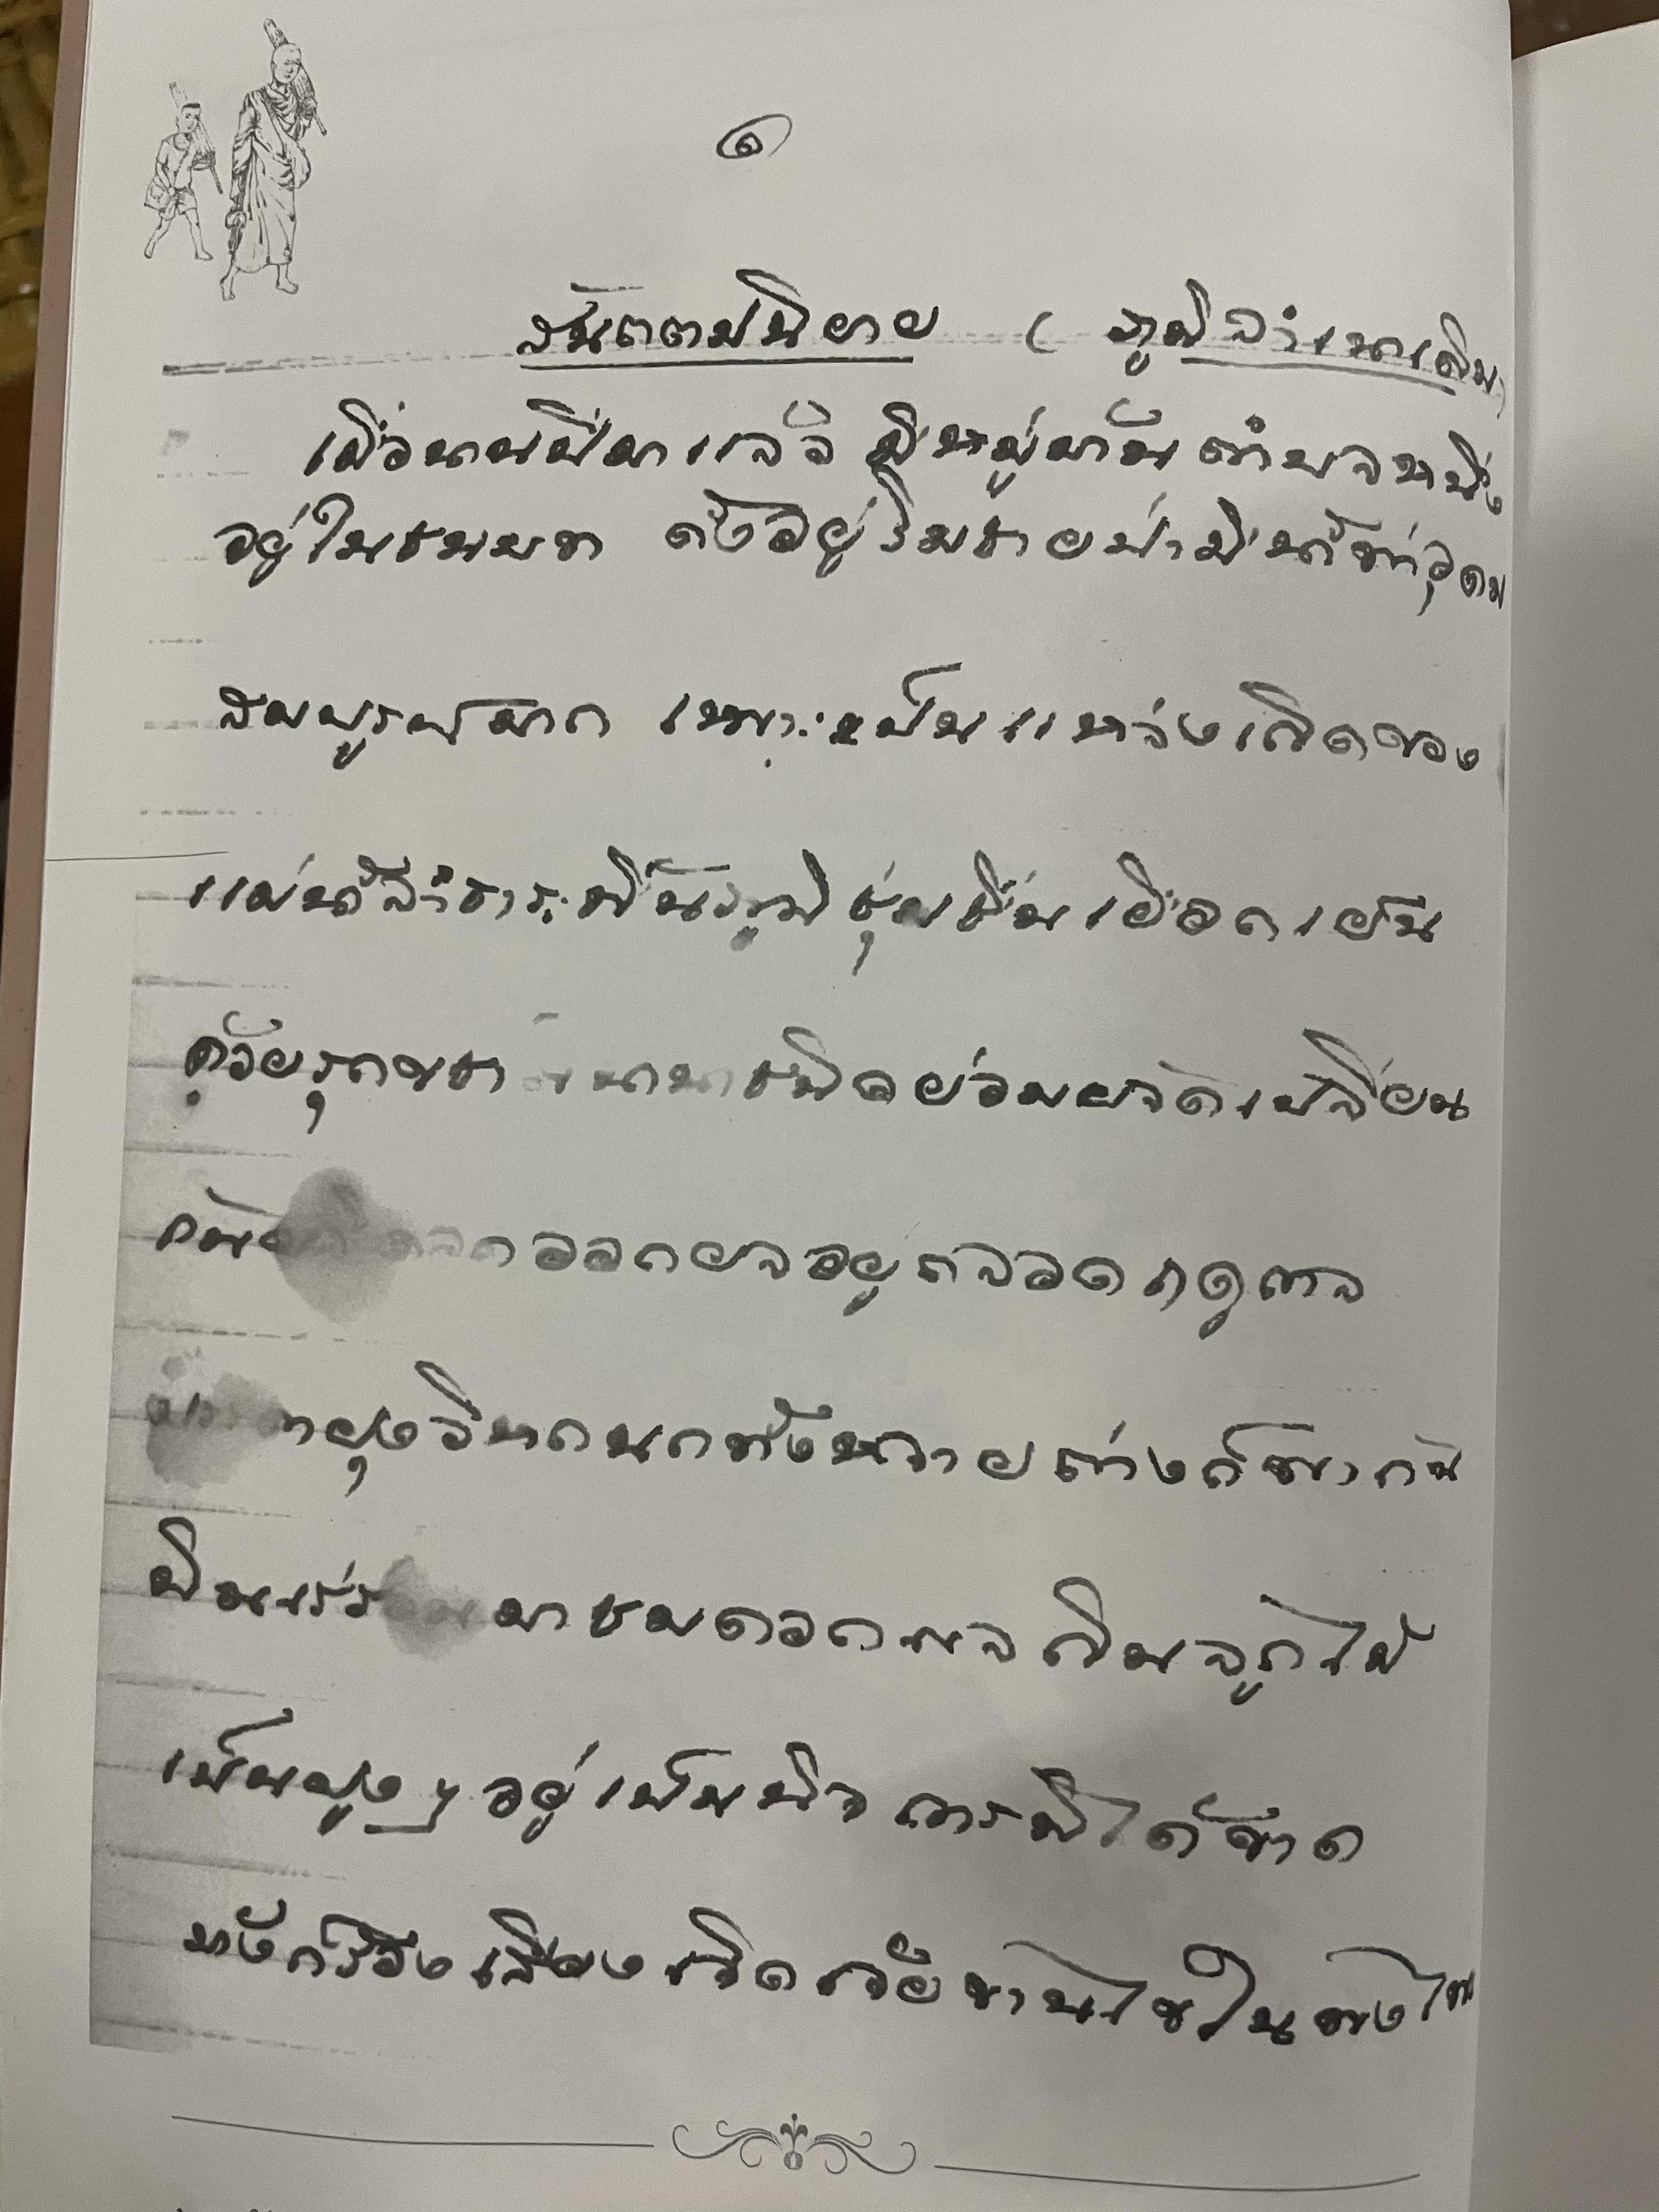 ๑
( ภูมิลำเนาเดิม)
เมื่อนานปีมาแล้ว มีหมู่บ้านตำบลหนึ่ง
อยู่ในชนบท ตั้งอยู่ริมชายป่ามีน้ำท่าอุดม
สมบูรณ์มาก เพราะเป็นแหล่งเกิดของ
แม่น้ำลำธาร พื้นภูมิชุ่มชื่นเยือกเย็น
ด้วยรุกขชาตินานาชนิดย่อมผลัดเปลี่ยน
กัน ออกผลอยู่ตลอดฤดูกาล
ฝูงวิหคนกทั้งหลายต่างก็พากัน
บินเร่ร่อนมาชมดอกผล กินลูกไม้
เป็นฝูงๆ อยู่เป็นนิจการมิได้ขาด
ทั้งก็ร้องเสียงเจิดแจ้ว